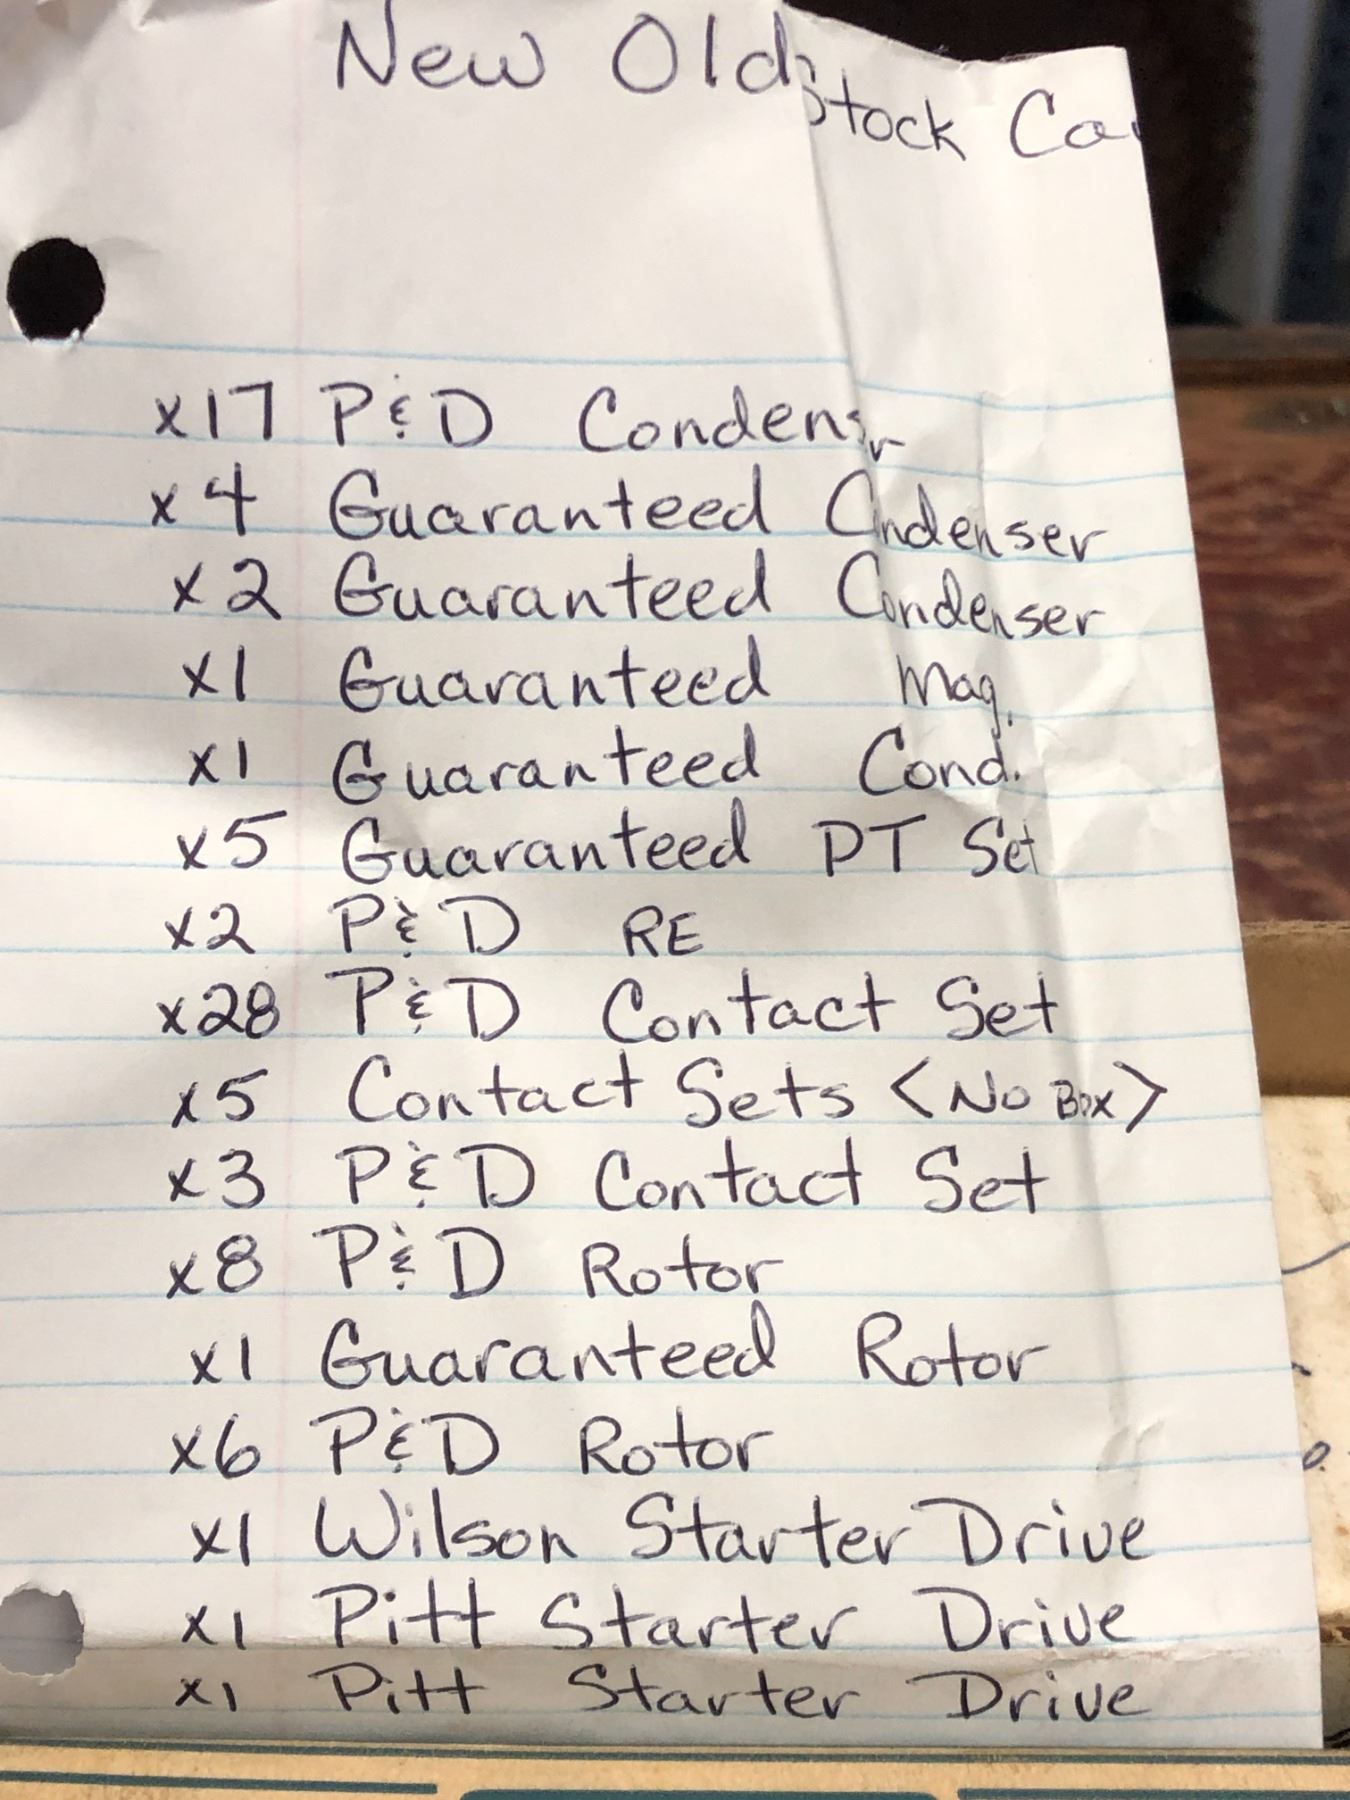 New Old Stock
x17 P&D
x4 Guaranteed Condenser
x2 Guaranteed Condenser
x1 Guaranteed Mag.
x1 Guaranteed Cond.
x5 Guaranteed PT Set
x2 P&D RE
x28 P&D Contact Set
x5 Contact Sets <No Box>
x3 P&D Contact Set
x8 P&D Rotor
x1 Guaranteed Rotor
x6 P&D Rotor
x1 Wilson Starter Drive
x1 Pitt Starter Drive
x1 Pitt Starter Drive